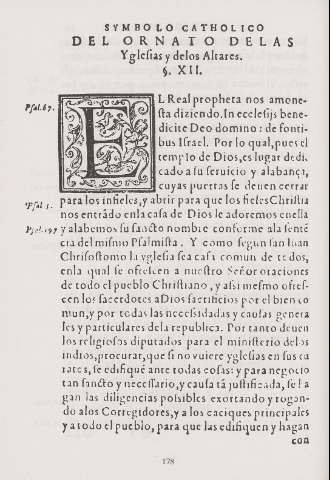 SYMBOLO CATHOLICO
DEL ORNATO DELAS
Yglesias y delos Altares.
§. XII.
Psal. 67.
EL Real propheta nos amone-
sta diziendo. In ecclesijs bene-
dicite Deo domino: de fonti-
bus Israel. Por lo qual, pues el
templo de Dios, es lugar dedi-
cado a su seruicio y alabança,
cuyas puertas se deuen cerrar
para los infieles, y abrir para que los fieles Christia
Psal. 5.
nos entrādo enla casa de Dios le adoremos enella
y alabemos su sancto nombre conforme ala sentē
cia del mismo Psalmista. Y como segun san Iuan
Chrisostomo la yglesia sea casa comun de todos,
enla qual se ofrescen a nuestro Señor oraciones
de todo el pueblo Christiano, y assi mesmo ofres-
cen los sacerdotes a Dios sacrificios por el bien co
mun, y por todas las necessidades y causas genera
les y particulares dela republica. Por tanto deuen
los religiosos diputados para el ministerio delos
indios, procurar, que si no vuiere yglesias en sus cu
ratos, se edifiquē ante todas cosas: y para negocio
tan sancto y necessario, y causa tā justificada, se ha
gan las diligencias possibles exortando y rogan-
do alos Corregidores, y a los caciques principales
y a todo el pueblo, para que las edifiquen y hagan
con
178